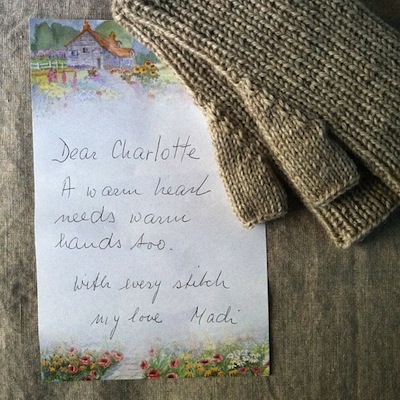 Dear Charlotte
A warm heart
needs warm
hands too.
With every stitch
my love Madi